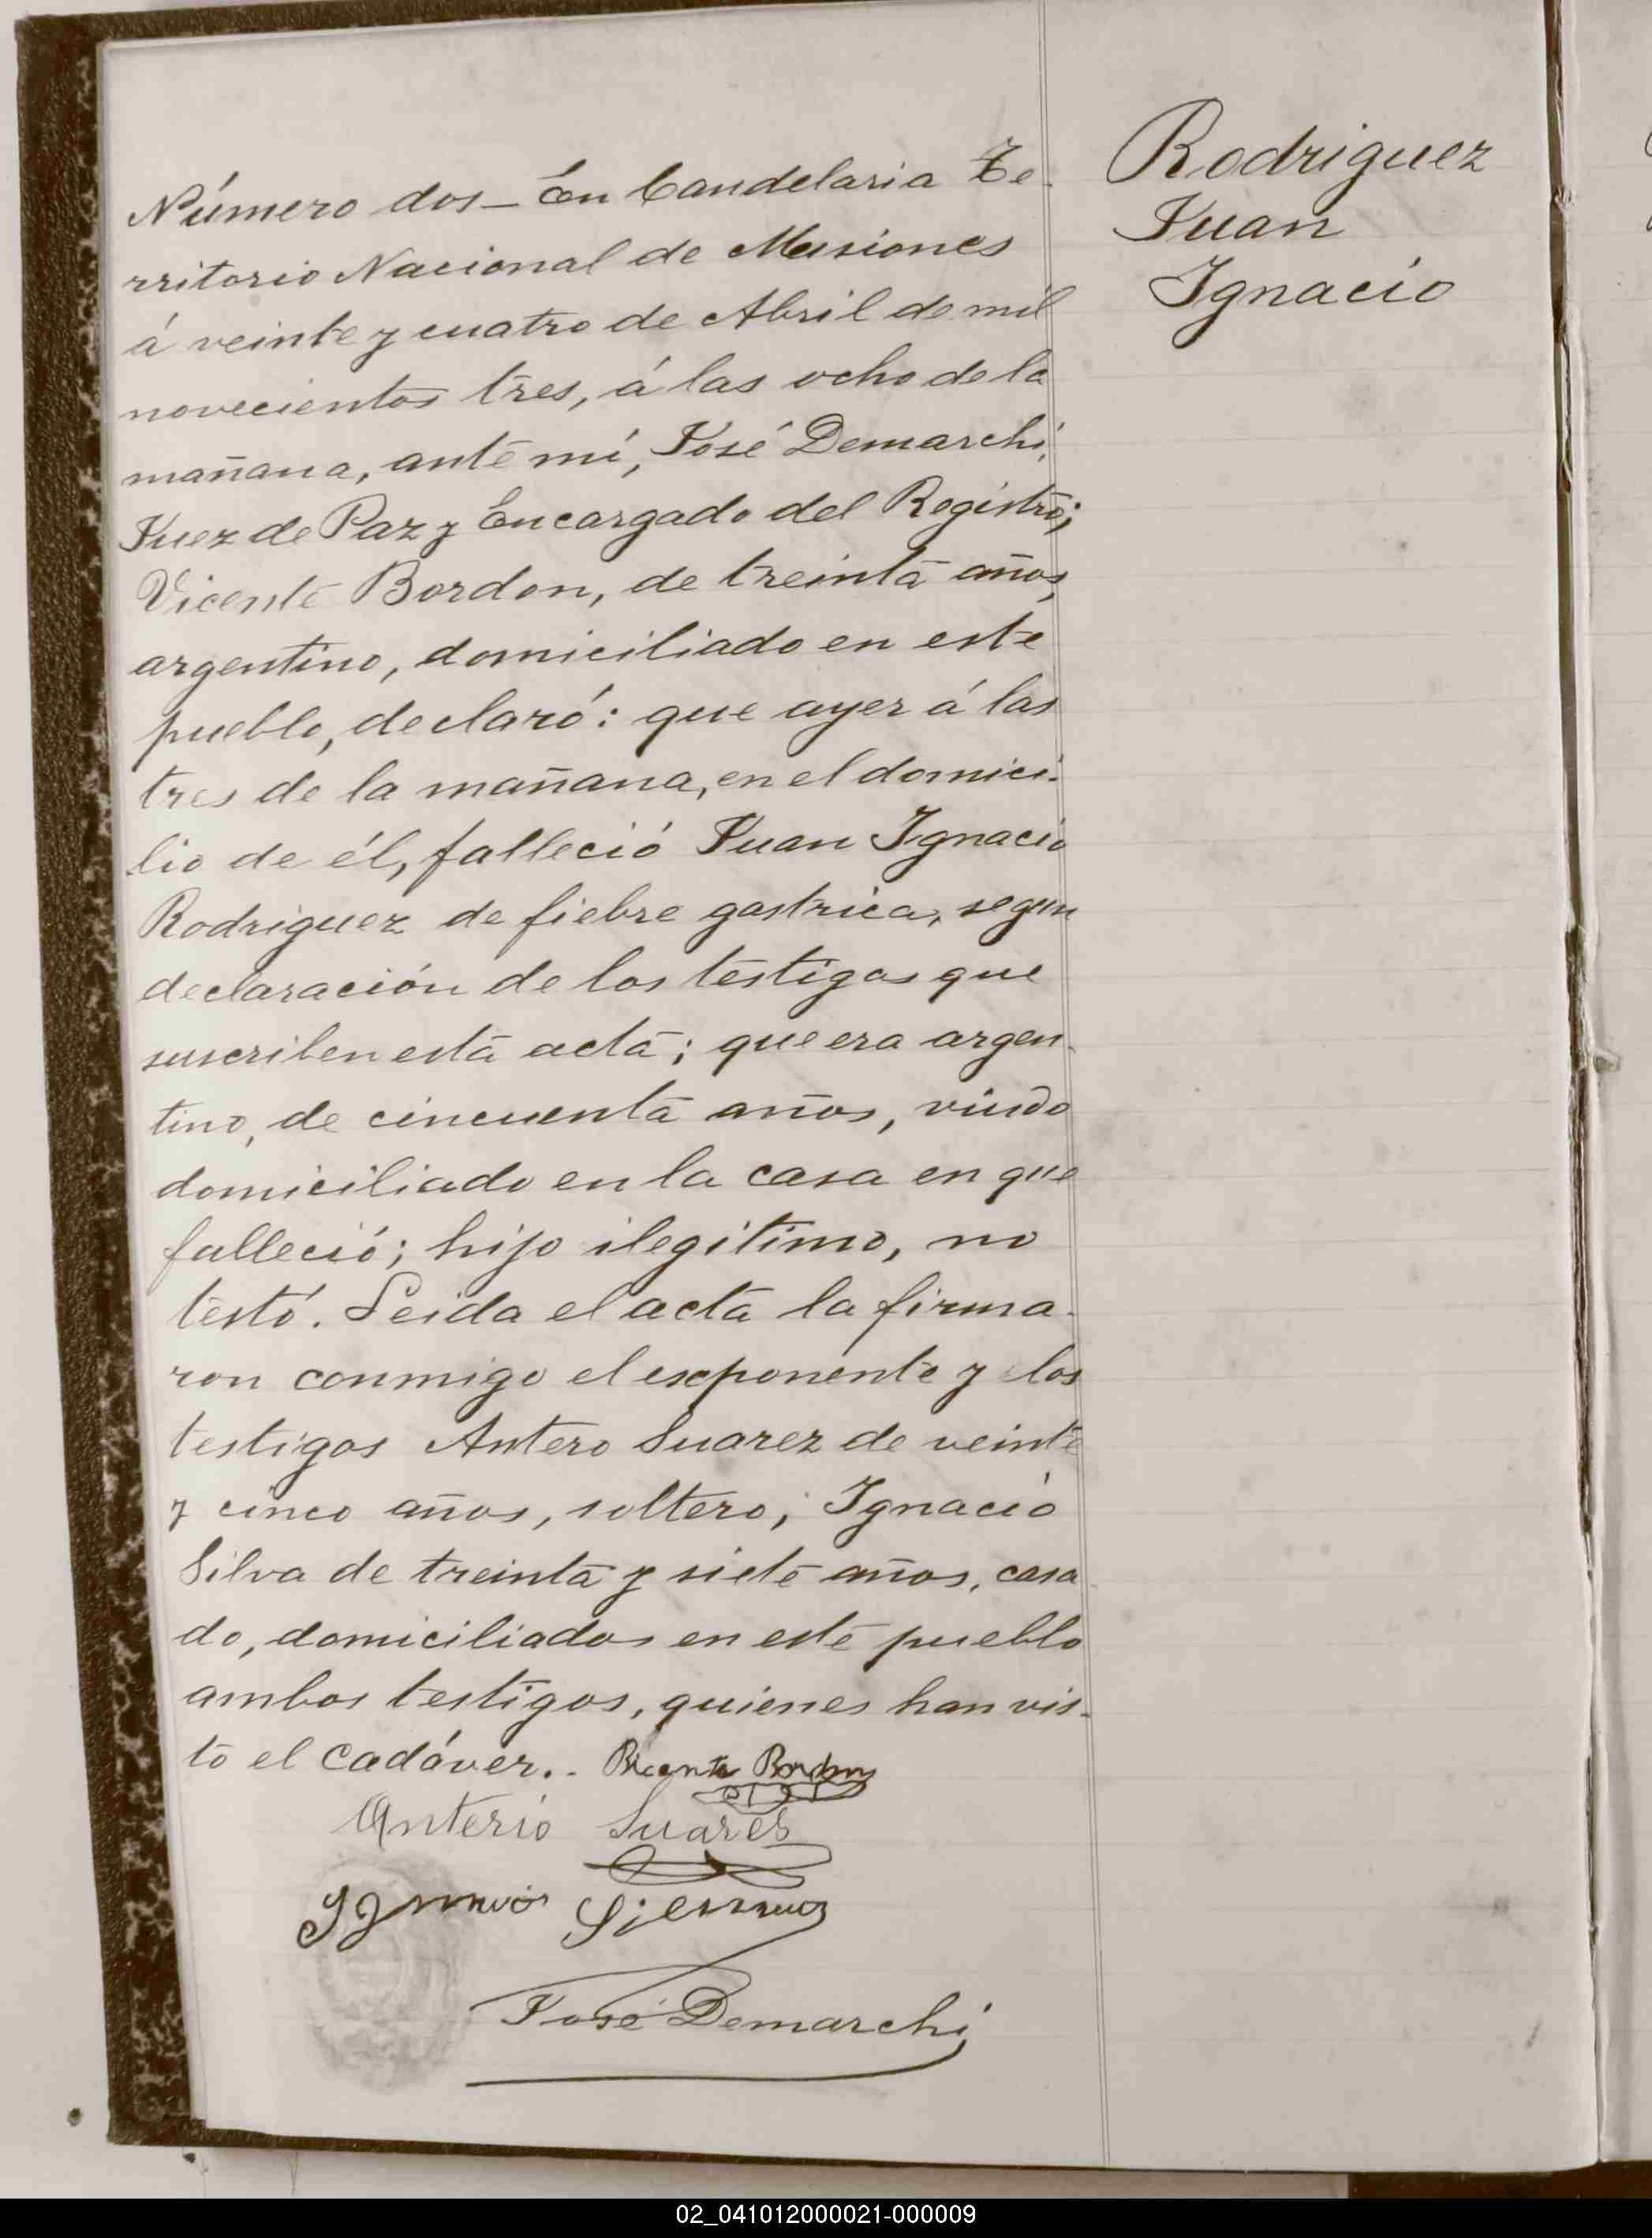 Número dos – En Candelaria Te-
rritorio Nacional de Misiones
á veinte y cuatro de Abril de mil
novecientos tres, á las ocho de la
mañana, ante mí, José Demarchi,
Juez de Paz y Encargado del Registro;
Vicente Bordon, de treinta años,
argentino, domiciliado en este
pueblo, declaró: que ayer á las
tres de la mañana, en el domici-
lio de él, falleció Juan Ignacio
Rodriguez de fiebre gastrica, segun
declaración de los testigos que
suscriben esta acta; que era argen-
tino, de cincuenta años, viudo
domiciliado en la casa en que
falleció; hijo ilegitimo, no
testó. Leida el acta la firma-
ron conmigo el exponente y los
testigos Antero Suarez de veinte
y cinco años, soltero; Ignacio
Silva de treinta y siete años, casa-
do, domiciliados en este pueblo
ambos testigos, quienes han vis-
to el cadáver..
Bicente Bordon
Anterio Suares
Ignacio
José Demarchi
Rodriguez
Juan
Ignacio
02_041012000021-000009